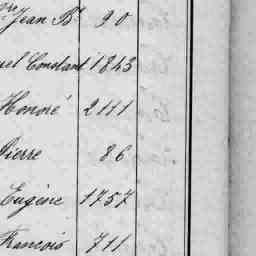 Jean Bte 90
uel Constant 1843
Honoré 2111
Pierre 86
Eugène 1757
François 711